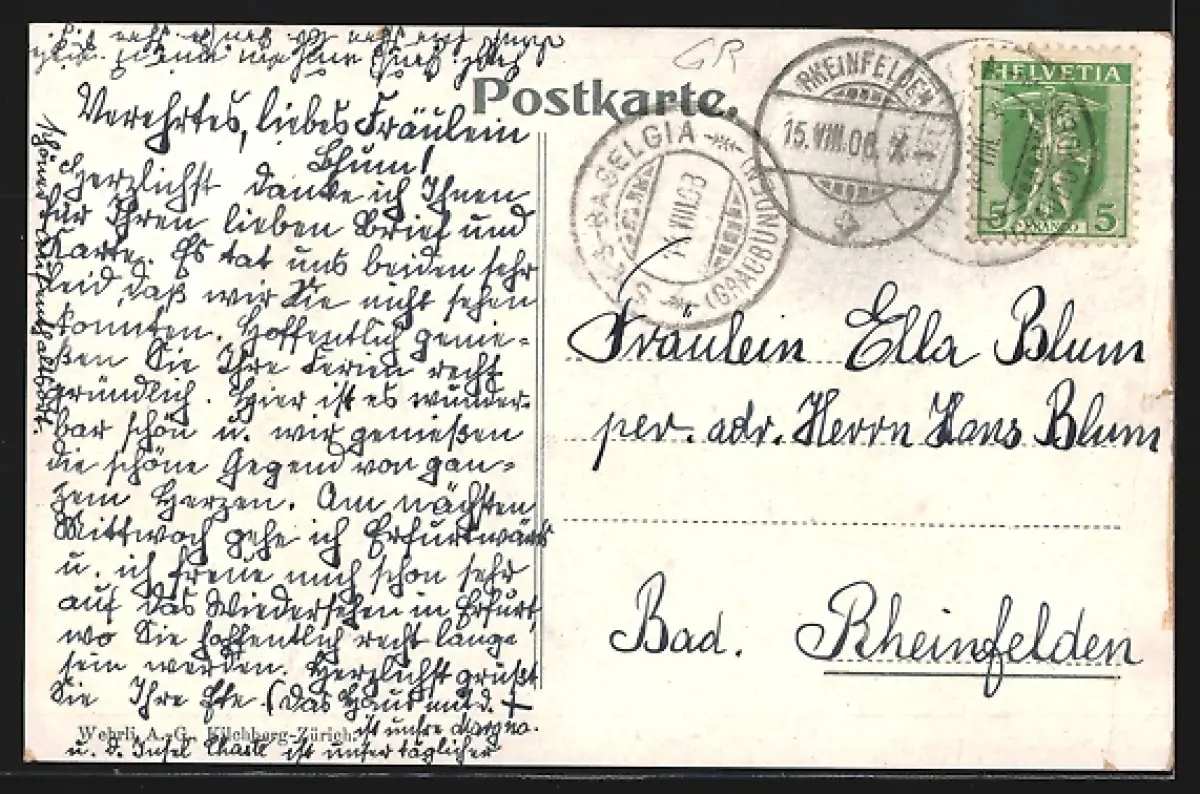 Postkarte.
GR
RHEINFELDEN
15.VIII.08.
SILS-BASELGIA
(GRAUBÜNDEN)
VIII.08
HELVETIA
5 5
FRANCO
Verehrtes, liebes Fräulein
Blum!
Herzlichst danke ich Ihnen
für Ihren lieben Brief und
Karte. Es tat uns beiden sehr
leid, daß wir Sie nicht sehen
konnten. Hoffentlich genie-
ßen Sie Ihre Ferien recht
gründlich. Hier ist es wunder-
bar schön u. wir genießen
die schöne Gegend von gan-
zem Herzen. Am nächsten
Mittwoch gehe ich Erfurtwärts
u. ich freue mich schon sehr
auf das Wiedersehen in Erfurt
wo Sie hoffentlich recht lange
sein werden. Herzlichst grüßt
Sie Ihre (Das Haus m. d. +
ist unsre
u. d. Insel Chasté ist unser täglicher
Wehrli A.-G., Kilchberg-Zürich.
Fräulein Ella Blum
per. adr. Herrn Hans Blum
Bad. Rheinfelden